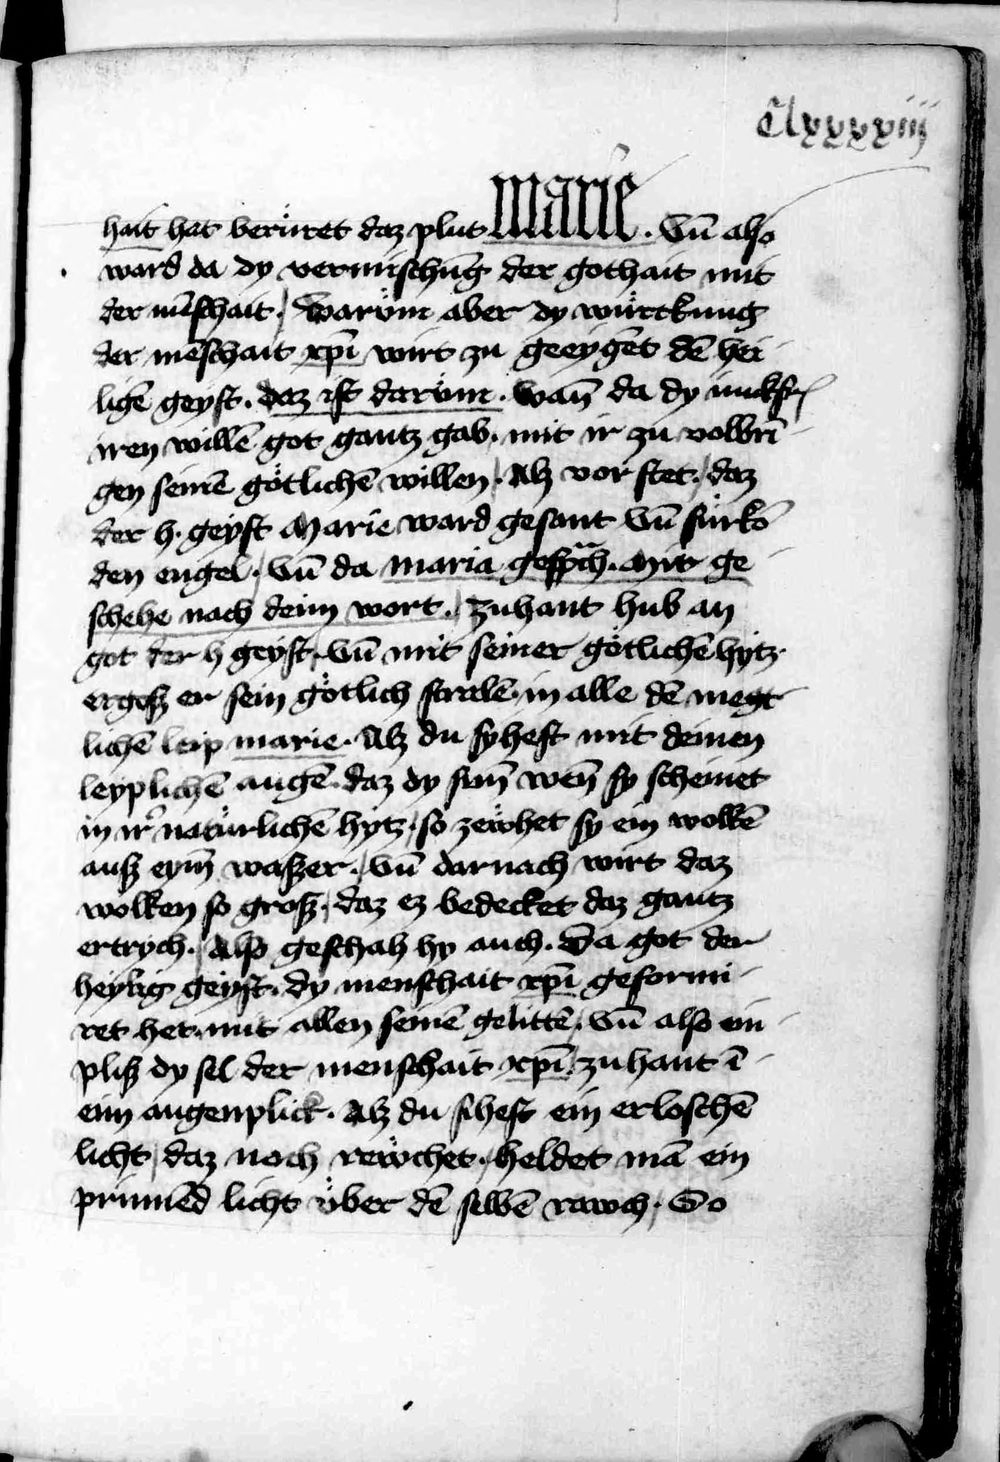 Clxxxxiij
hait hat verüret daz plut marie . Vn̄ also
ward da dy vermischūg der gothait mit
der mēschait . Warüm aber dy würckung
der mēschait xp̄i wirt zu geeygēt dē hei
ligē geyst . daz ist darüm . Wan̄ da dy iūckfr̄
iren willē got gantz gab . mit ir zu volbri
gen seinē götlichē willen . Alz vor stet . daz
der h . geyst Marie ward gesant Vn̄ fürkō
den engel . Vn̄ da maria gesprach . Mir ge
schehe nach deim wort . Zuhant hub an
got der h geyst . Vn̄ mit seiner götlichē hytz
ergosz er sein götlich stralē . in alle dē megt
lichē leip marie . Alz du syhest mit deinen
leyplichē augē . daz dy sun̄ wen̄ sy scheinet
in ir natürlichē hytz . so zewhet sy ein wolkē
ausz eym̄ waszer . Vn̄ darnach wirt daz
wolken so grosz . daz ez bedecket daz gantz
ertrych . Also geschah hy auch . Da got der
heylig geyst . dy menschait xp̄i geformi
ret het . mit allen seinē gelittē . Vn̄ also ein
plisz dy sel der menschait xp̄i zuhant ī
eim augenplick . Alz du sihest ein erloschē
licht daz noch rewchet . heldet mā ein
prinnēd licht über dē selbē rawch . So